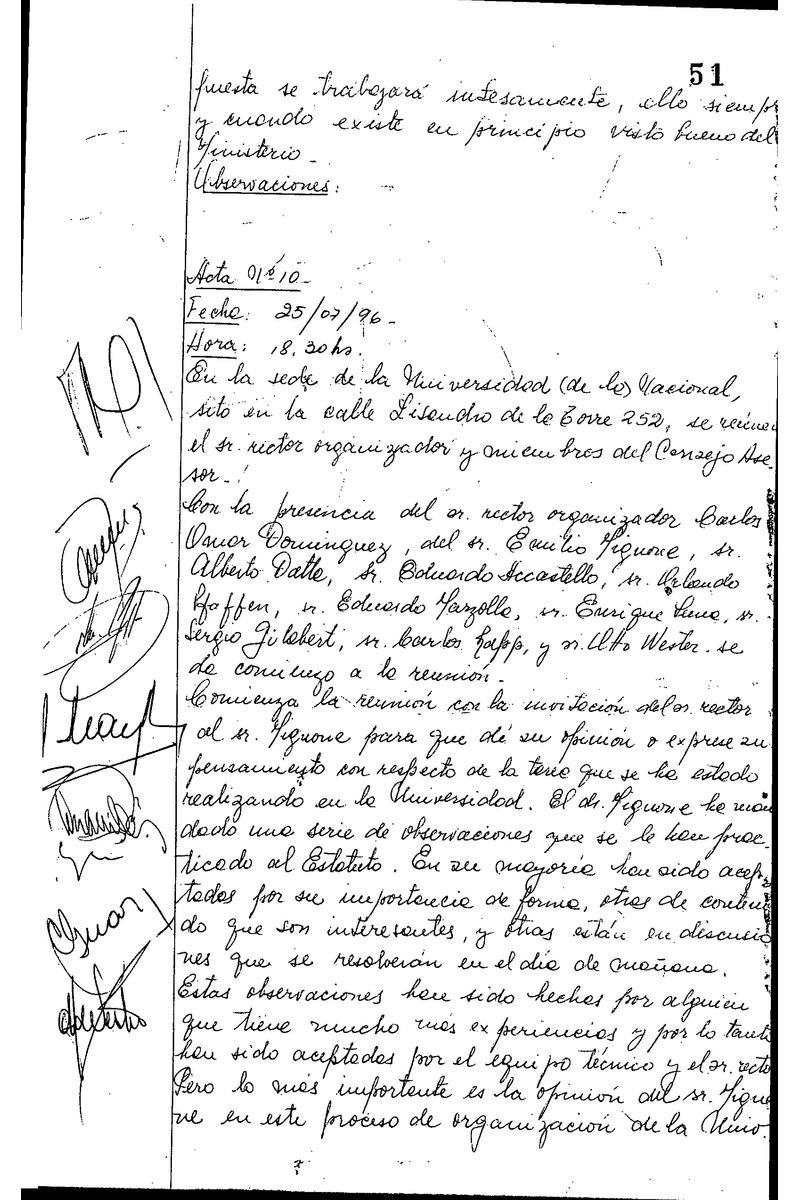 51
puesta se trabajará intesamente, ello siempr
y cuando existe en principio visto bueno del
Ministerio.
Observaciones:
Acta Nº 10.
Fecha: 25/07/96.
Hora: 18.30 hs.
En la sede de la Universidad (de la) Nacional,
sito en la calle Lisandro de la Torre 252, se reúnen
el sr. rector organizador y miembros del Consejo Ase-
sor.
Con la presencia del sr. rector organizador Carlos
Omar Domínguez, del sr. Emilio Mignone, sr.
Alberto Dalla, Sr. Eduardo Accastello, sr. Orlando
Pfaffen, sr. Eduardo Marzolla, sr. Enrique Luna, sr.
Sergio Gilabert, sr. Carlos Rapp, y sr. Otto Wester. se
da comienzo a la reunión.
Comienza la reunión con la invitación del sr. rector
al sr. Mignone para que dé su opinión o exprese su
pensamiento con respecto de la tarea que se ha estado
realizando en la Universidad. El dr. Mignone ha man
dado una serie de observaciones que se le han prac-
ticado al Estatuto. En su mayoría han sido acep-
tadas por su importancia de forma, otras de conteni
do que son interesantes, y otras están en discusio
nes que se resolverán en el día de mañana.
Estas observaciones han sido hechas por alguien
que tiene mucho más experiencias y por lo tanto
han sido aceptadas por el equipo técnico y el sr. recto
Pero lo más importante es la opinión del sr. Migno
ne en este proceso de organización de la Univ.